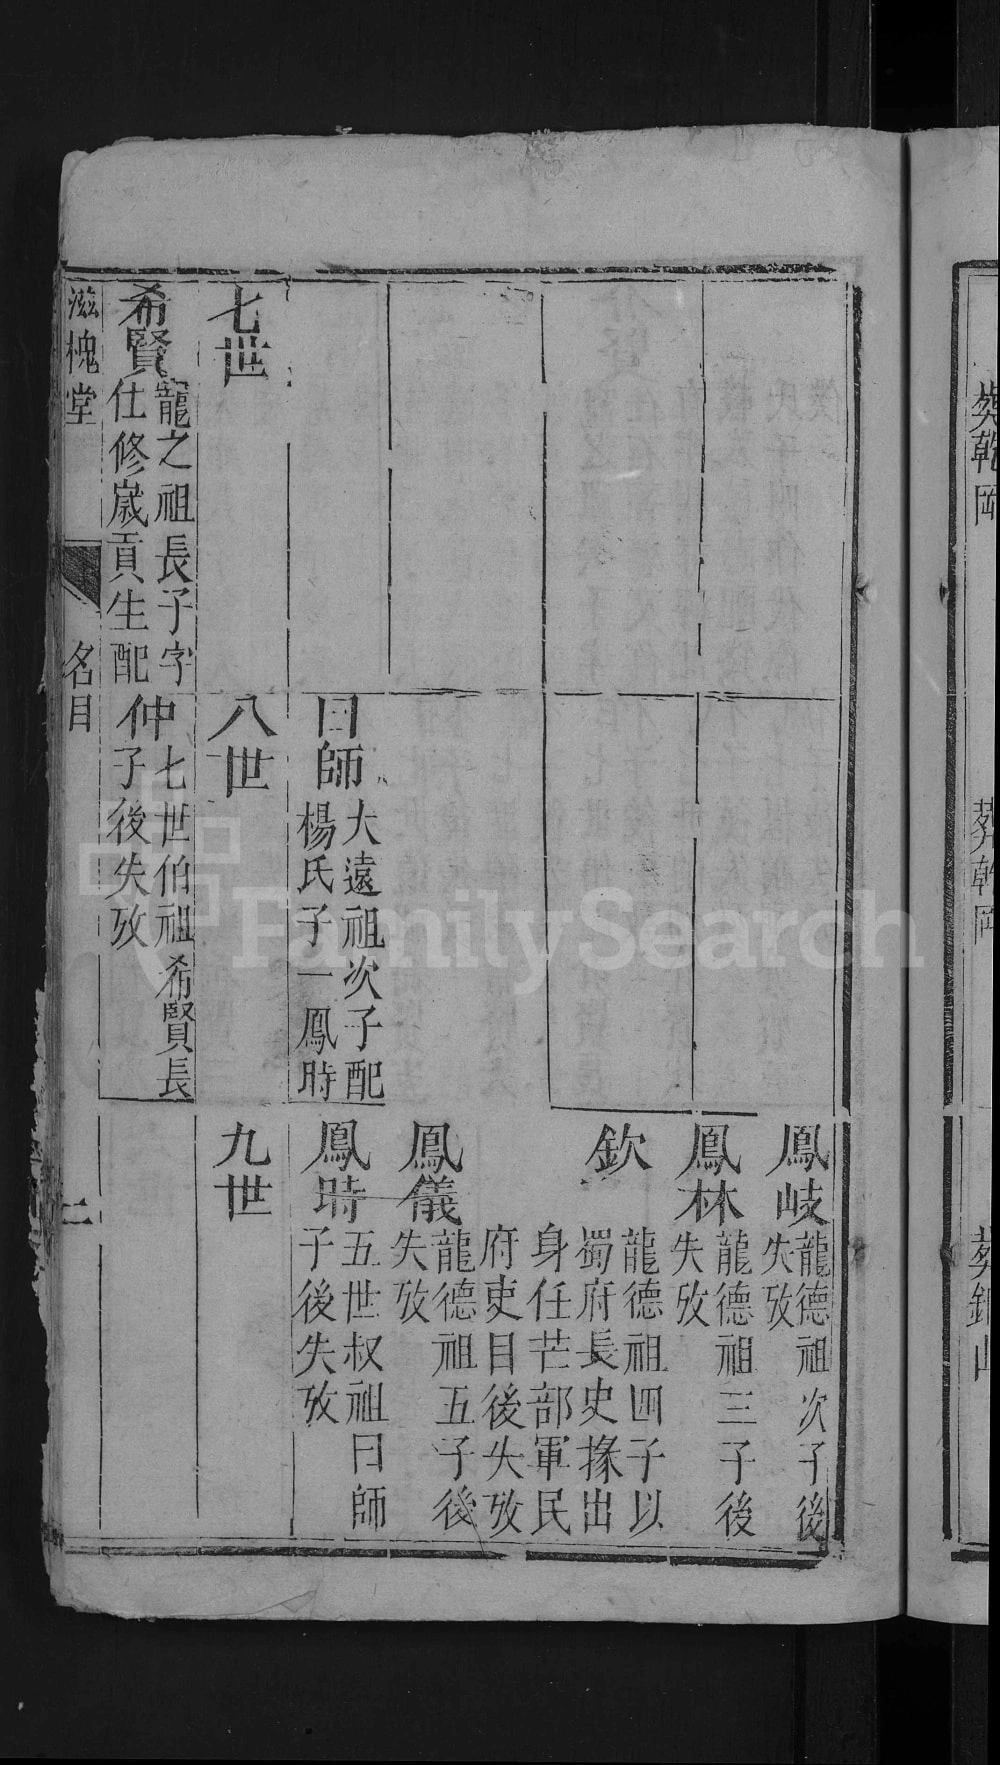 葬乾岡
葬乾岡
鳳岐
龍德祖次子後
失攷
鳳林
龍德祖三子後
失攷
欽
龍德祖四子以
蜀府長史掾出
身任芒部軍民
府吏目後失攷
鳳儀
龍德祖五子後
失攷
曰師
大遠祖次子配
楊氏子一鳳時
鳳時
五世叔祖曰師
子後失攷
七世
八世
九世
希賢
寵之祖長子字
仕修歲貢生配
仲
七世伯祖希賢長
子後失攷
滋槐堂
名目
二
FamilySearch